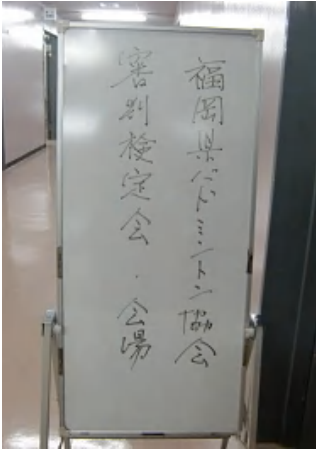 福岡県バドミントン協会
審判検定会・会場